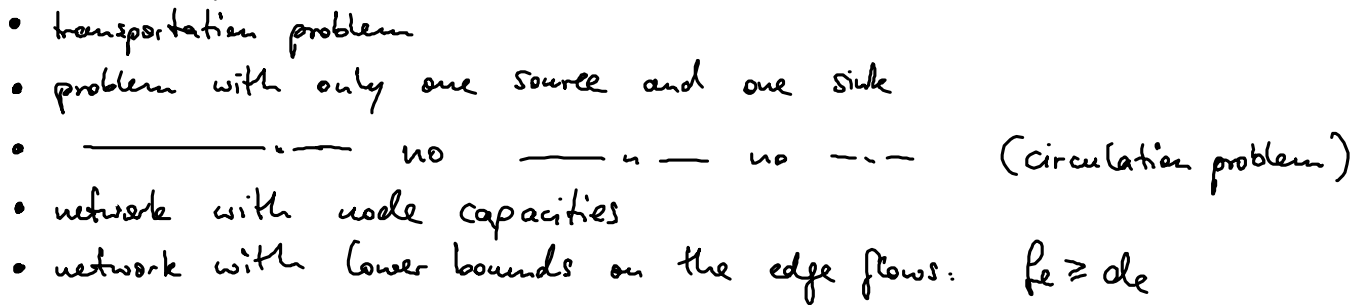 • transportation problem
• problem with only one source and one sink
• —————— " —— no ——— " —— no — " — (circulation problem)
• network with node capacities
• network with lower bounds on the edge flows: fe ≥ de